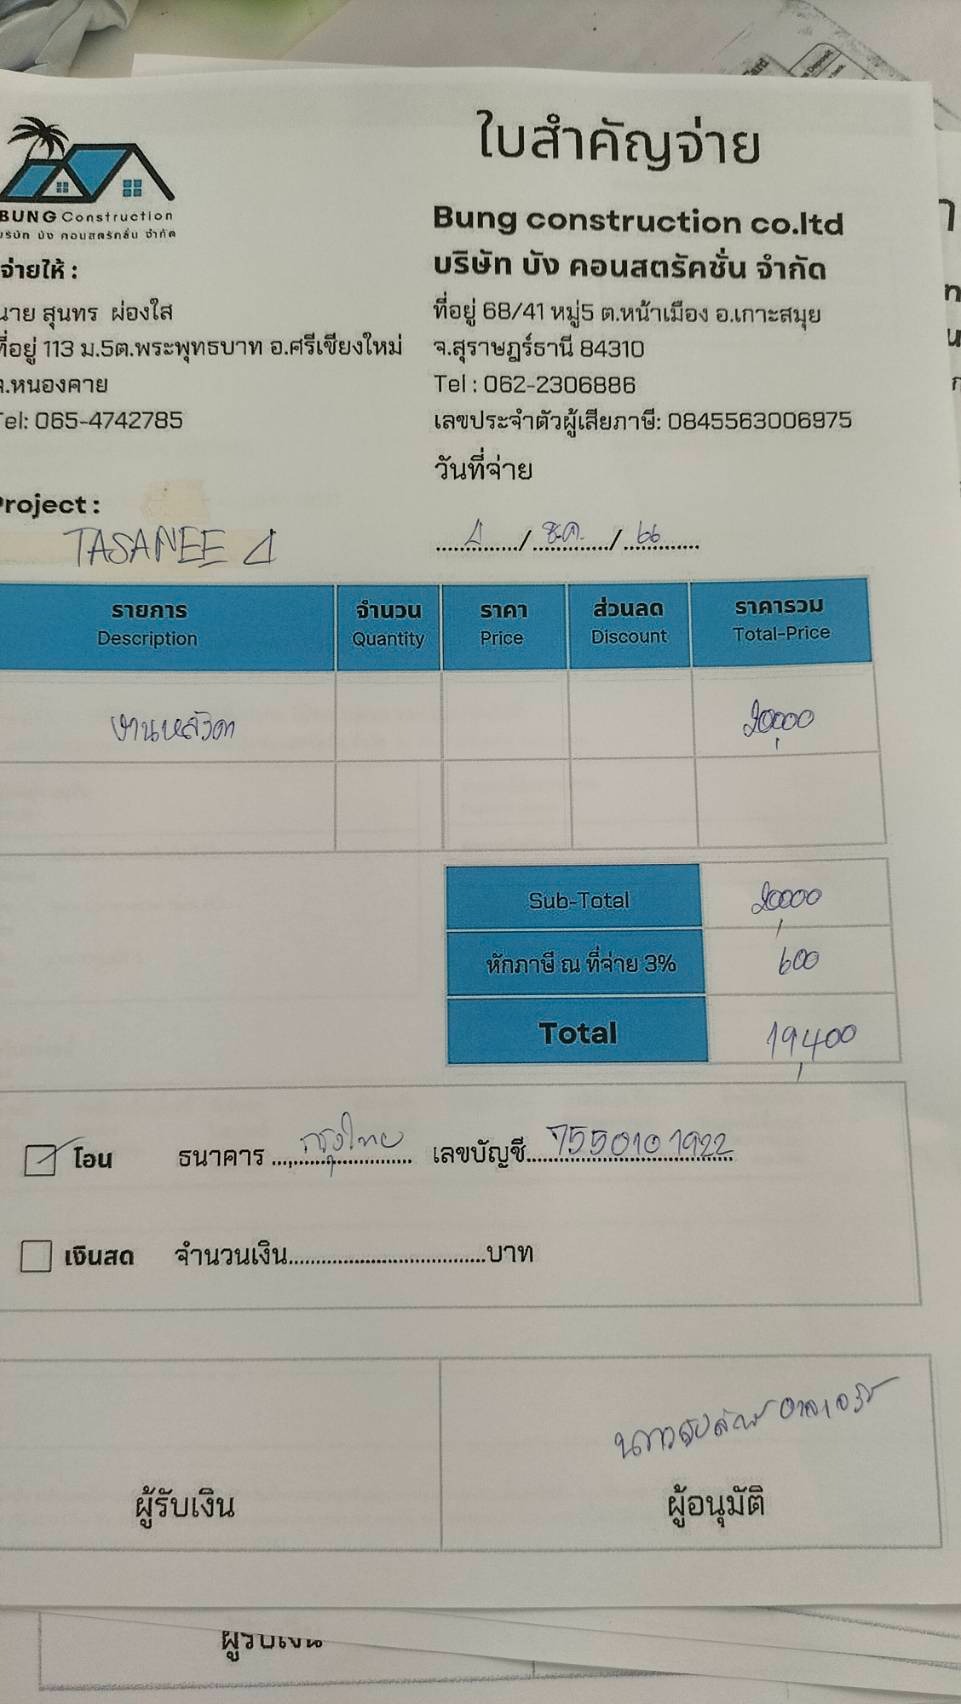 BUNG Construction
บริษัท บัง คอนสตรัคชั่น จำกัด
ใบสำคัญจ่าย
Bung construction co.ltd
บริษัท บัง คอนสตรัคชั่น จำกัด
ที่อยู่ 68/41 หมู่5 ต.หน้าเมือง อ.เกาะสมุย
จ.สุราษฎร์ธานี 84310
Tel : 062-2306886
เลขประจำตัวผู้เสียภาษี: 0845563006975
วันที่จ่าย
4 / ธ.ค. / 66
จ่ายให้ :
นาย สุนทร ผ่องใส
ที่อยู่ 113 ม.5ต.พระพุทธบาท อ.ศรีเชียงใหม่
จ.หนองคาย
Tel: 065-4742785
Project :
TASANEE 4
รายการ จำนวน ราคา ส่วนลด ราคารวม
Description Quantity Price Discount Total-Price
งานหลังคา 20,000
Sub-Total 20,000
หักภาษี ณ ที่จ่าย 3% 600
Total 19,400
โอน ธนาคาร กรุงไทย เลขบัญชี 7550101922
เงินสด จำนวนเงิน บาท
ผู้รับเงิน ผู้อนุมัติ
ผู้รับเงิน